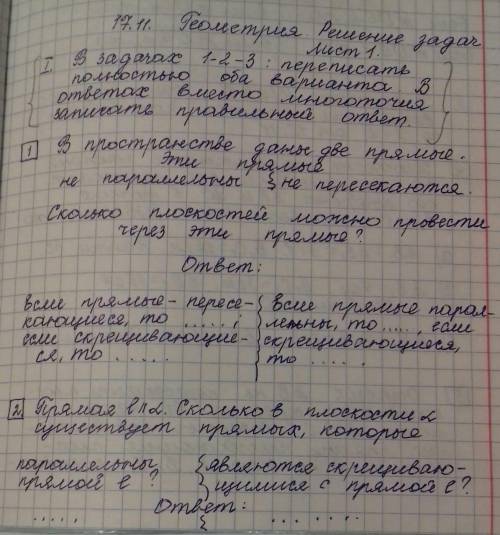 17.11. Геометрия Решение задач
Лист 1.
I. В задачах 1-2-3: переписать
полностью оба варианта В
ответах вместо многоточия
записать правильный ответ.
1 В пространстве даны две прямые.
Эти прямые
не параллельны { не пересекаются.
Сколько плоскостей можно провести
через эти прямые?
Ответ:
Если прямые - пересе- { Если прямые парал-
кающиеся, то .....; { лельны, то ....., если
если скрещивающие- { скрещивающиеся,
ся, то ..... { то .....
2 Прямая ℓ ∥ α. Сколько в плоскости α
существует прямых, которые
параллельны { являются скрещиваю-
прямой ℓ ? { щимися с прямой ℓ?
Ответ:
..... { .......